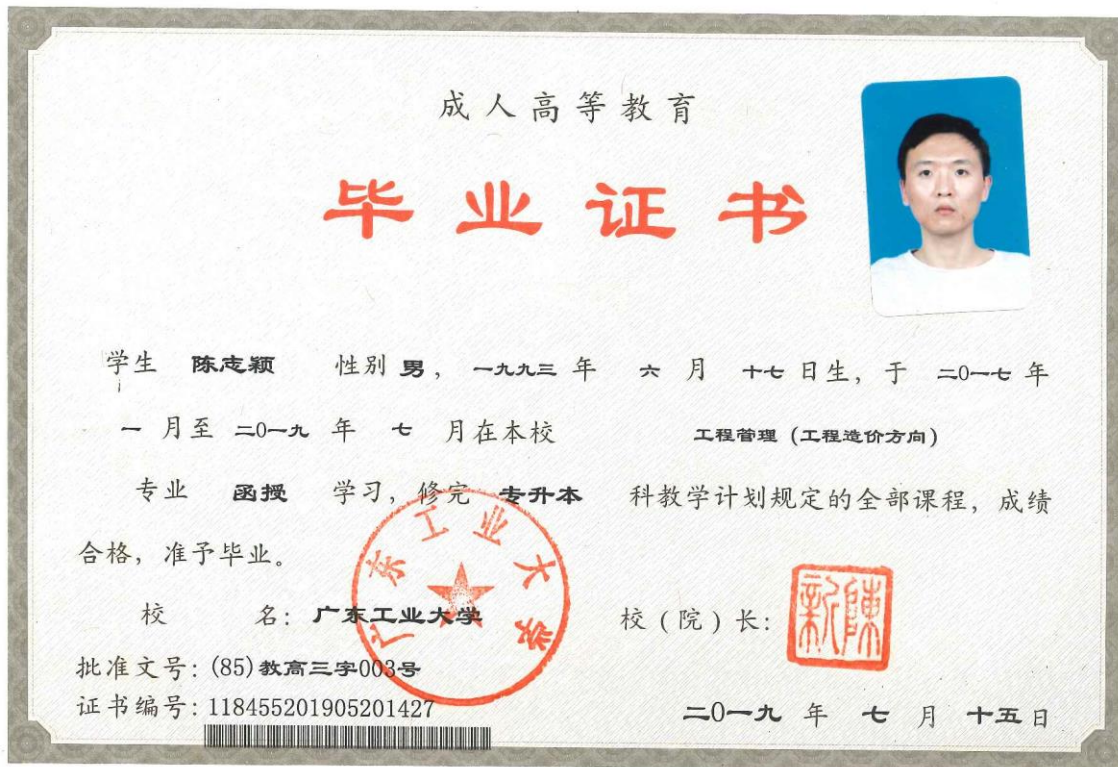 成人高等教育
毕业证书
学生 陈志颖 性别 男，一九九三 年 六 月 十七 日生，于 二0一七 年
一 月至 二0一九 年 七 月在本校 工程管理（工程造价方向）
专业 函授 学习，修完 专升本 科教学计划规定的全部课程，成绩
合格，准予毕业。
广东工业大学
校 名：广东工业大学 校（院）长：陳新
批准文号：(85)教高三字003号
证书编号：118455201905201427
二0一九 年 七 月 十五 日